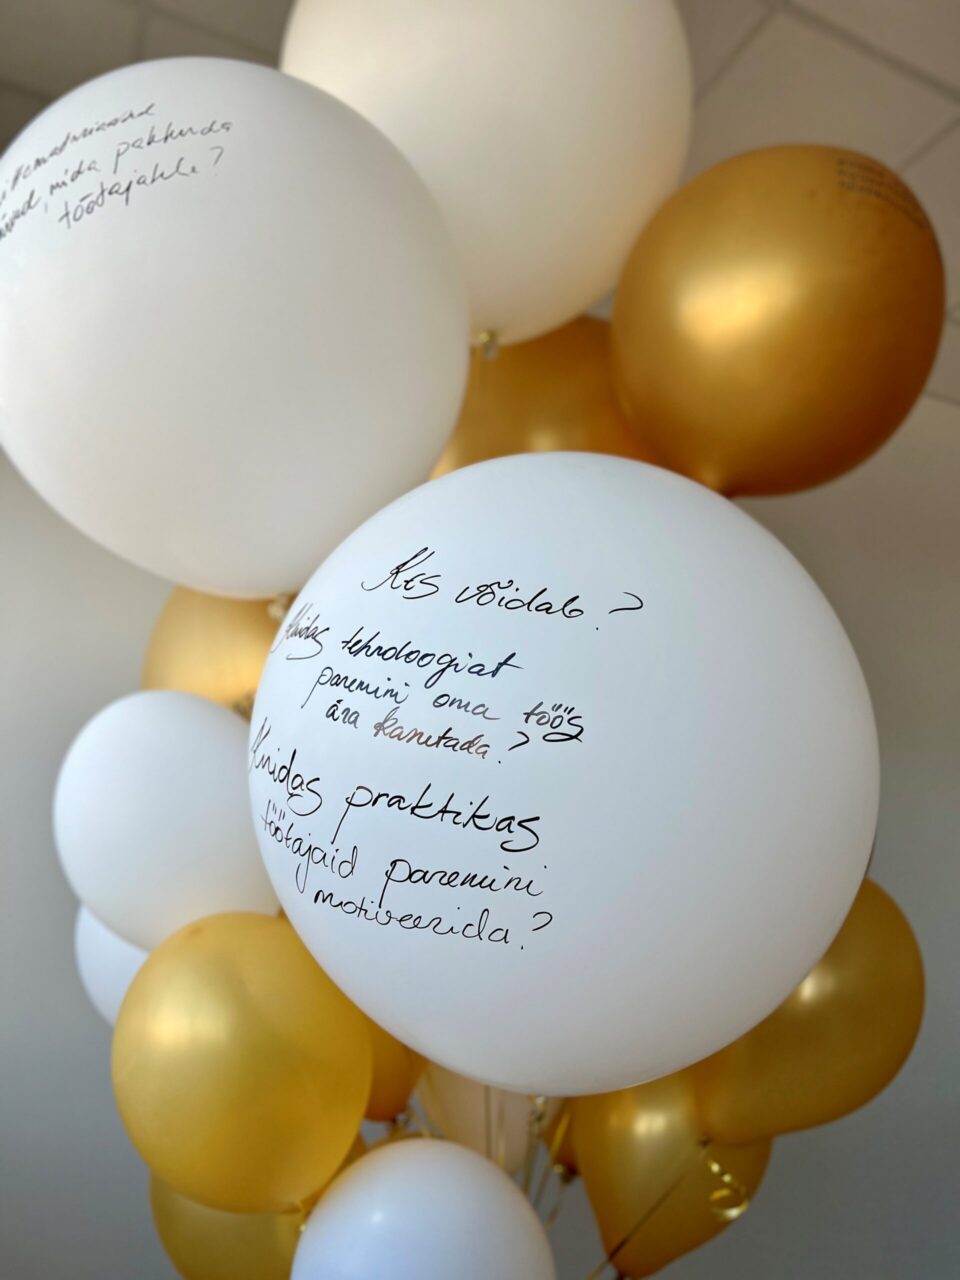 mida pakkuda
töötajatele?
Kes võidab?
Kuidas tehnoloogiat
paremini oma töös
ära kasutada?
Kuidas praktikas
töötajaid paremini
motiveerida?